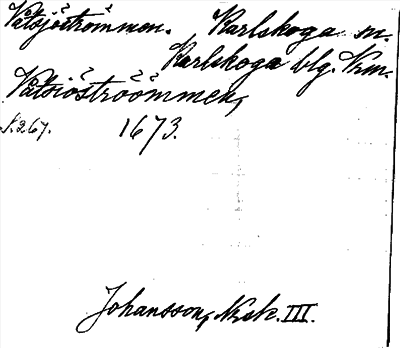 Våtsjöströmmen. Karlskoga sn.
Karlskoga blg. Vrm.
Våtsiöströömmen,
S. 267. 1673.
Johansson, Nork. III.